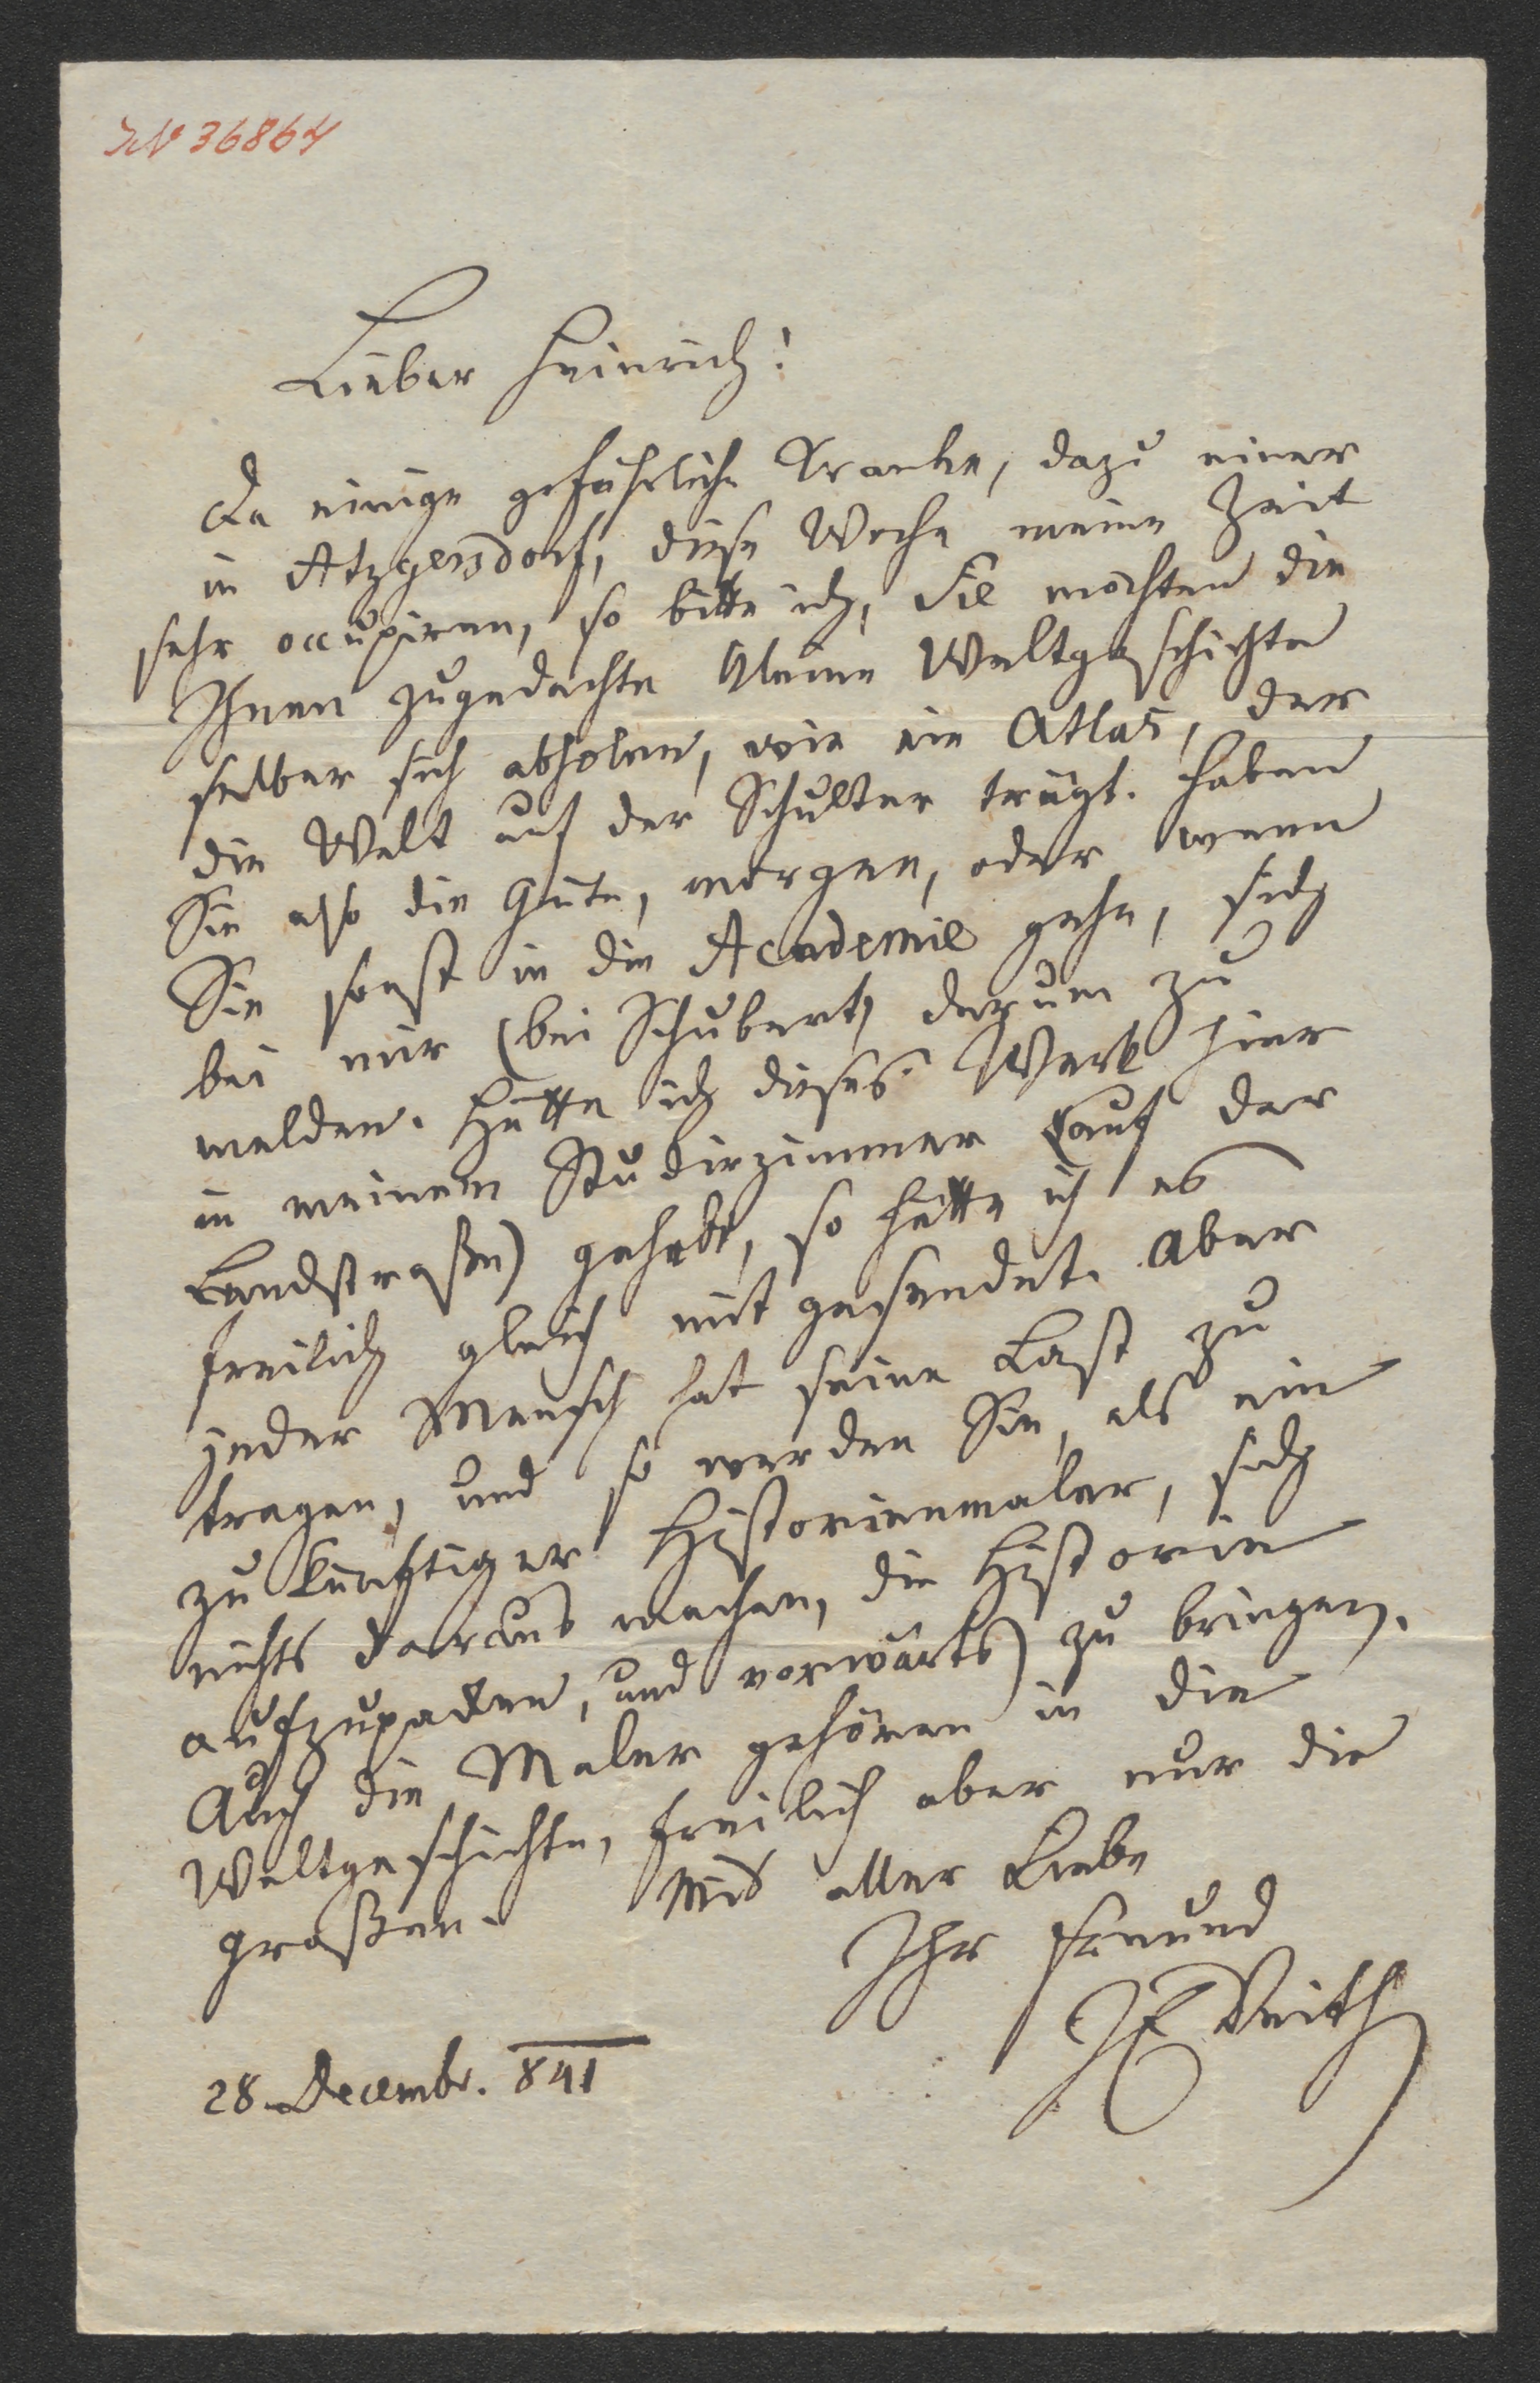 IN 36864
Lieber Heinrich!
Da einige gefährliche Kranke, dazu einer
in Atzgersdorf, diese Woche meine Zeit
sehr occupiren, so bitte ich, Sie möchten die
Ihnen zugedachte kleine Weltgeschichte
selber sich abholen, wie ein Atlas, der
die Welt auf der Schulter trägt. Haben
Sie also die Güte, morgen, oder wenn
Sie sonst in die Academie gehn, sich
bei mir (bei Schubert) darum zu
melden. Hätte ich dieses Werk hier
in meinem Studirzimmer (auf der
Landstraße) gehabt, so hätte ich es
freilich gleich mit gesendet. Aber
jeder Mensch hat seine Last zu
tragen, und so werden Sie, als ein
zukünftiger Historienmaler, sich
nichts daraus machen, die Historie
aufzupacken, und vorwärts zu bringen.
Auch die Maler gehören in die
Weltgeschichte, freilich aber nur die
großen. Mit aller Liebe
Ihr Freund
JE Veith
28. Decembr. 841